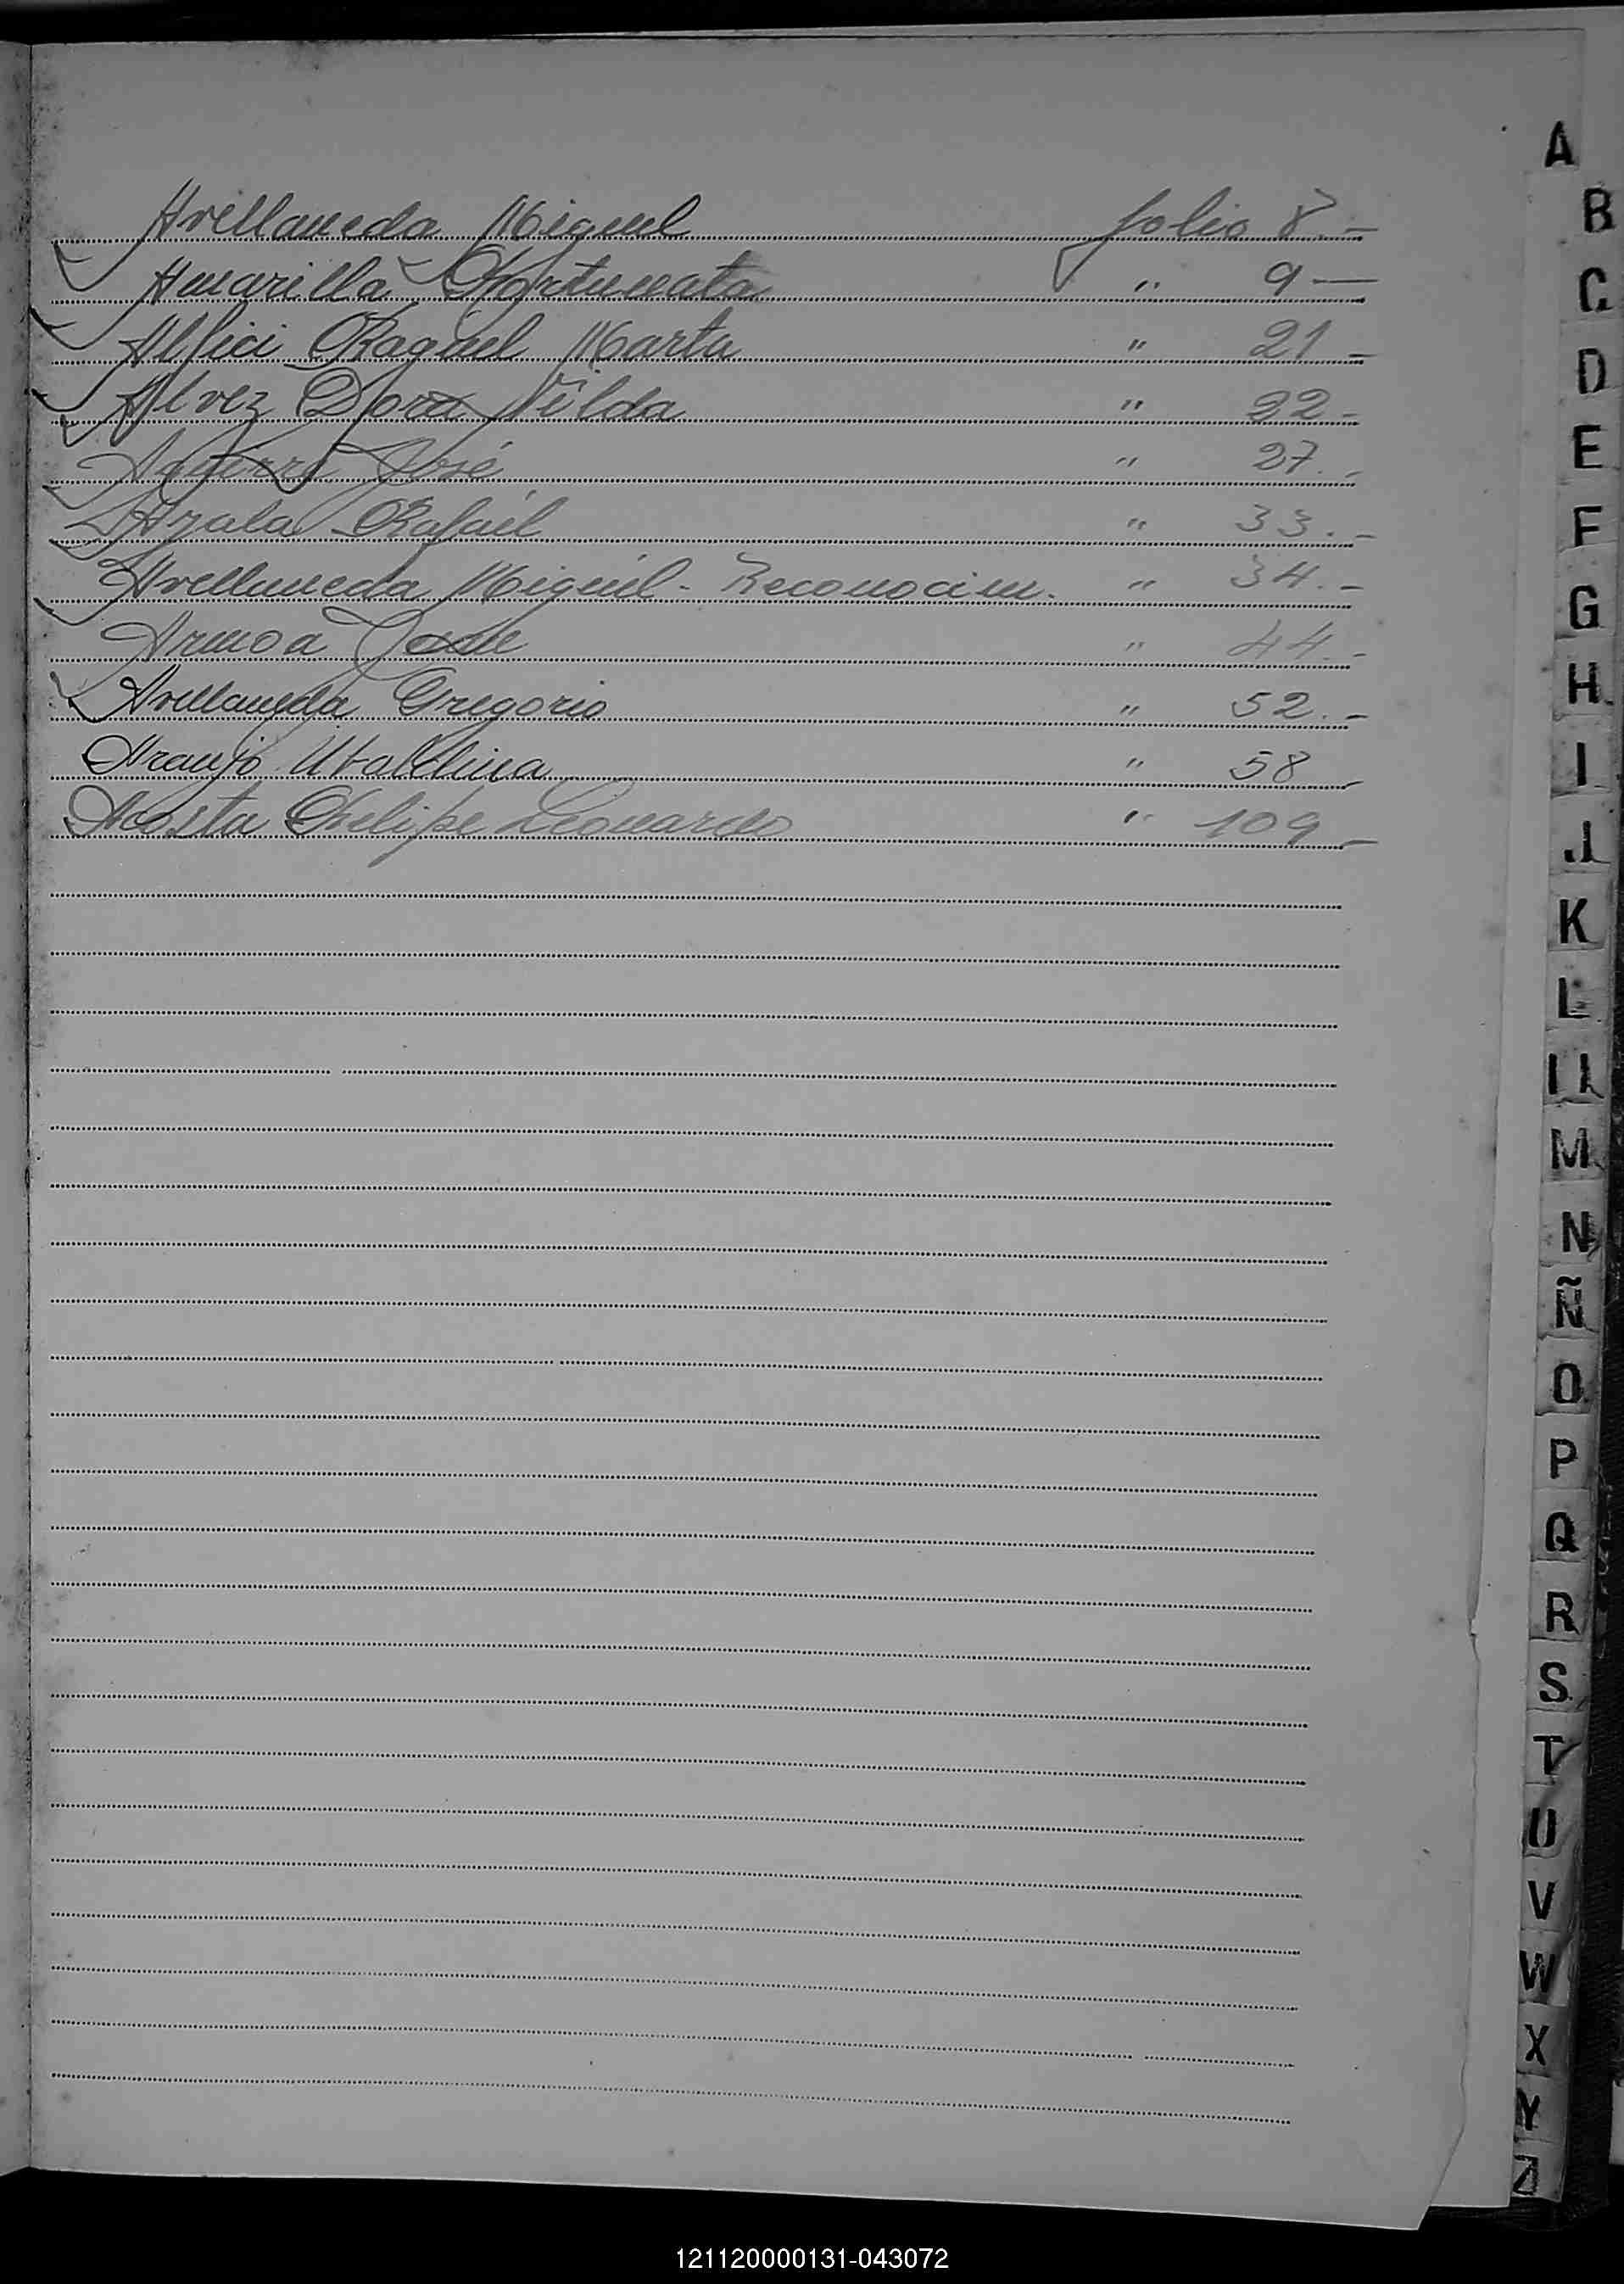 Avellaneda Miguel folio 8.-
Amarilla Fortunata " 9 —
Alfici Raquel Marta " 21 -
Alvez Dora Nilda " 22 -
Aguirre José " 27.-
Azala Rafael " 33.-
Avellaneda Miguel - Reconocim. " 34.-
Armoa " 44.-
Avellaneda Gregorio " 52.-
Araujo Ubaldina " 58 -
Acosta Felipe Leonardo " 109 -
A
B
C
D
E
F
G
H
I
J
K
L
LL
M
N
Ñ
O
P
Q
R
S
T
U
V
W
X
Y
Z
121120000131-043072